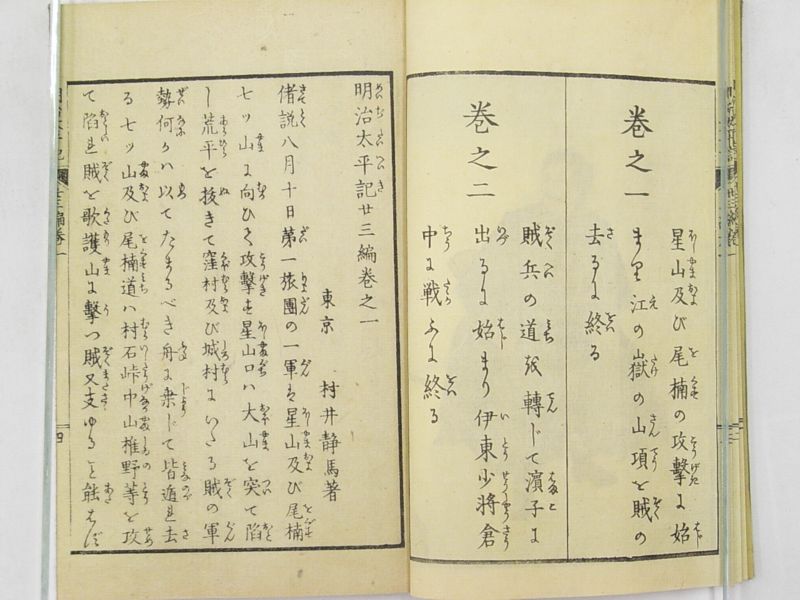 巻之一
星山及び尾楠の攻撃に始
まり江の嶽の山頂を賊の
去るに終る
巻之二
賊兵の道を轉じて濱子に
出るに始まり伊東少将倉
中に戦ふに終る
明治太平記廿三編巻之一
東京 村井静馬著
偖説八月十日第一旅團の一軍は星山及び尾楠
七ッ山に向ひて攻撃す星山口ハ大山を突て陥
し荒平を抜きて窪村及び城村にいたる賊の軍
勢何かハ以てたまるべき舟に乗じて皆遁れ去
る七ッ山及び尾楠道ハ村石峠中山椎野等を攻
て陥れ賊を歌護山に撃つ賊又支ゆること能はず